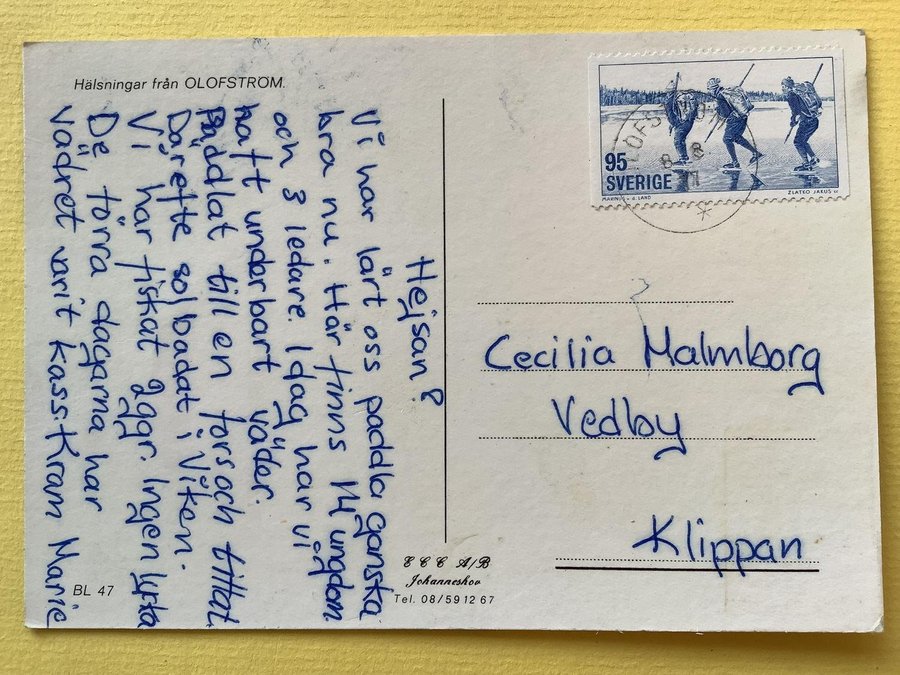 Hälsningar från OLOFSTRÖM.
Hejsan?
Vi har lärt oss paddla ganska
bra nu. Här finns 14 ungdom
och 3 ledare. Idag har vi
haft underbart väder.
Paddlat till en fors och tittat
Därefte solbadat i viken.
Vi har fiskat 2ggr. Ingen lycka
De förra dagarna har
vädret varit kass. Kram Marie
BL 47
ECC A/B
Johanneshov
Tel. 08/59 12 67
95
SVERIGE
MARINUS v. d. LAND
ZLATKO JAKUS sc
8 8
77
Cecilia Malmborg
Vedby
Klippan